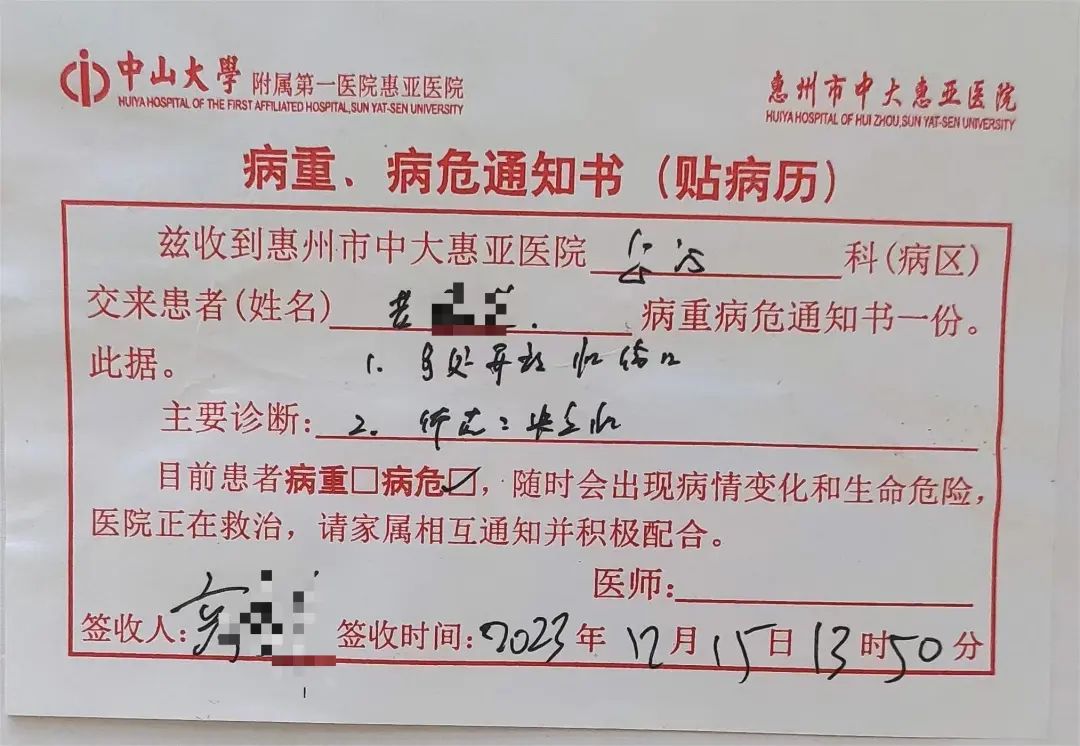 中山大學 附属第一医院惠亚医院
HUIYA HOSPITAL OF THE FIRST AFFILIATED HOSPITAL,SUN YAT-SEN UNIVERSITY
惠州市中大惠亚医院
HUIYA HOSPITAL OF HUI ZHOU,SUN YAT-SEN UNIVERSITY
病重、病危通知书（贴病历）
兹收到惠州市中大惠亚医院 科(病区)
交来患者(姓名) 病重病危通知书一份。
此据。 1.
主要诊断: 2.
目前患者病重□病危☑，随时会出现病情变化和生命危险，
医院正在救治，请家属相互通知并积极配合。
医师:
签收人: 签收时间: 2023年 12月 15日 13时50分